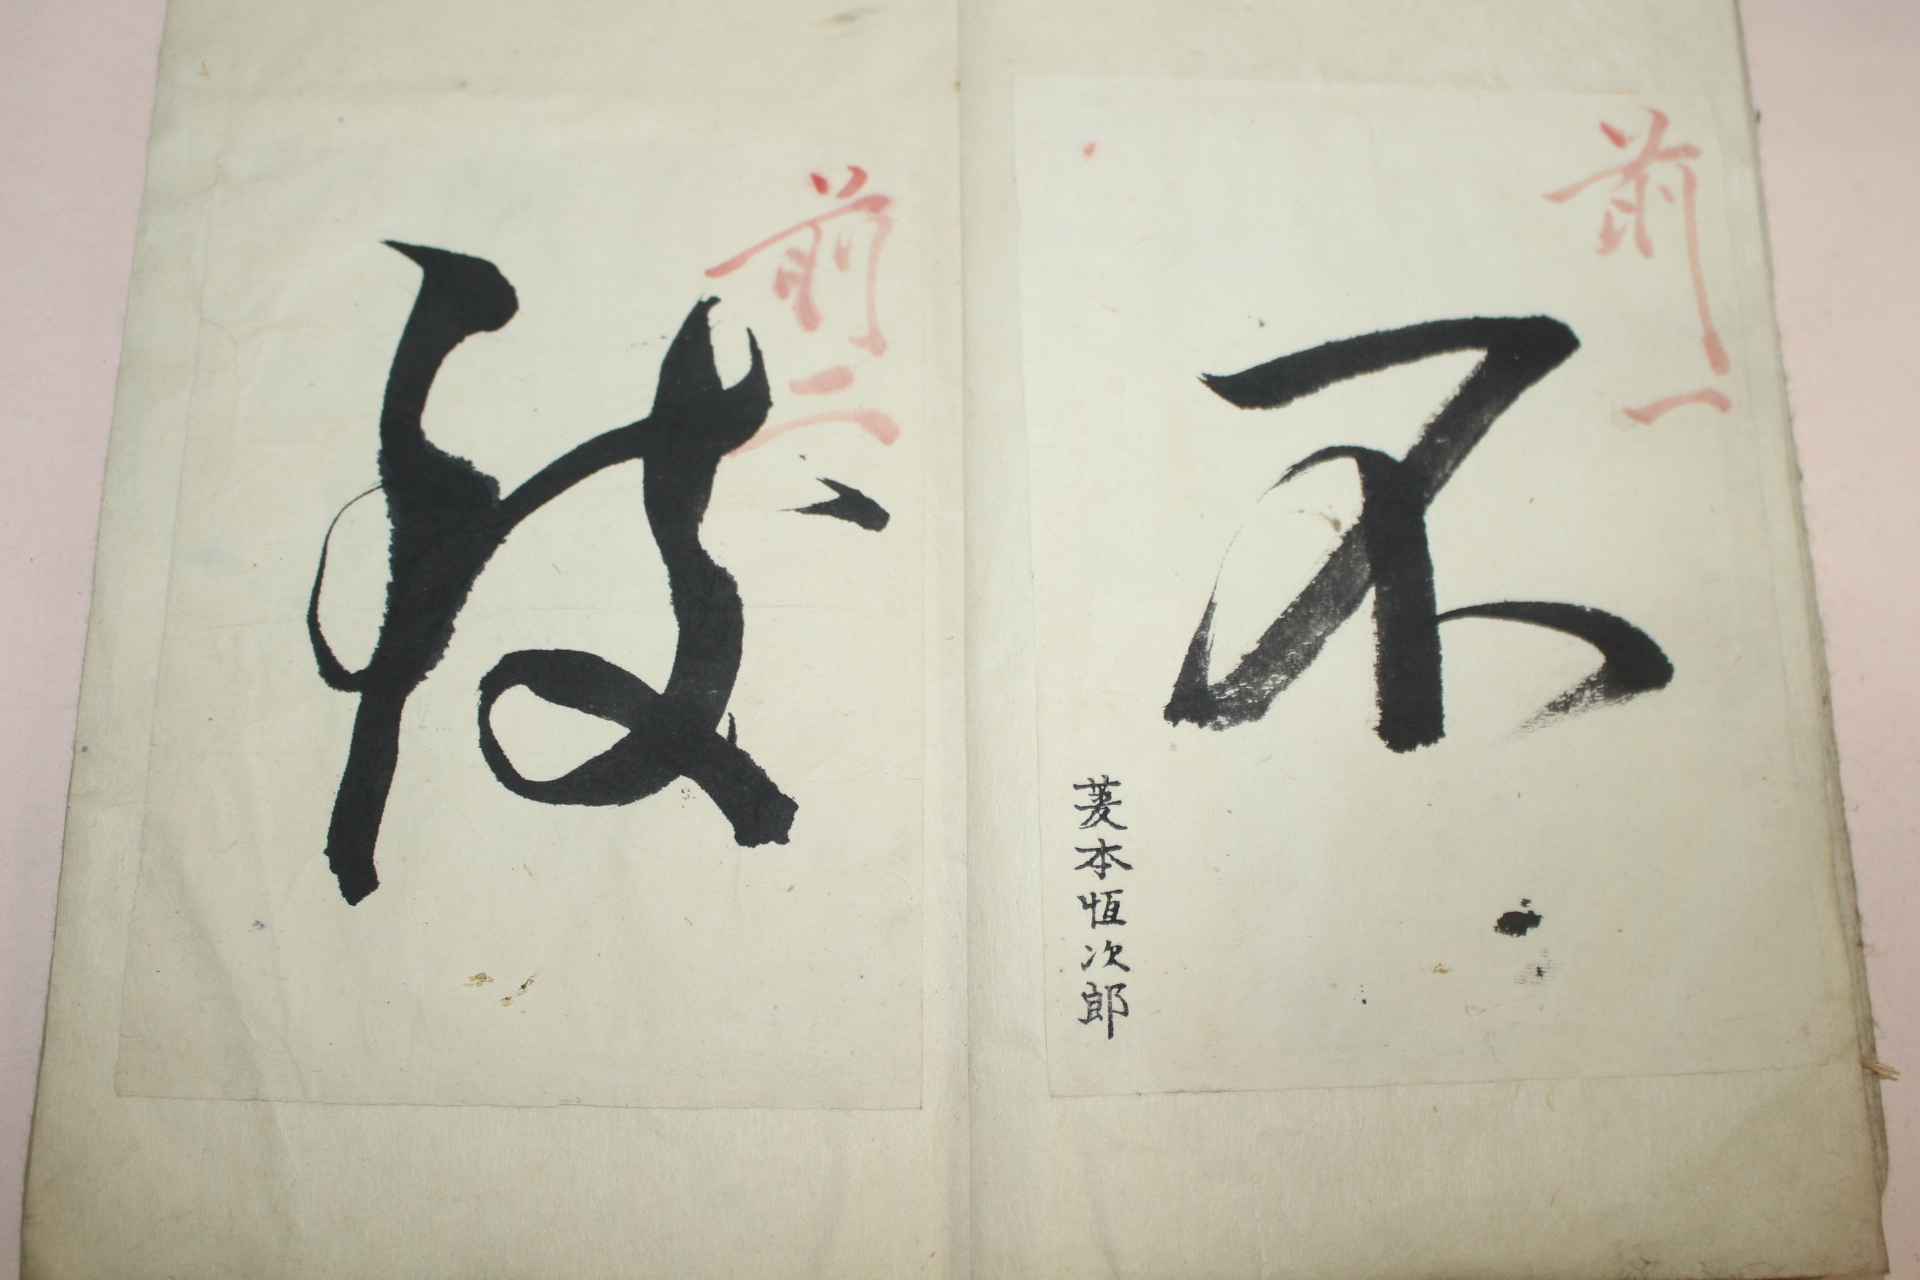 前一
不
菱本恒次郎
前二